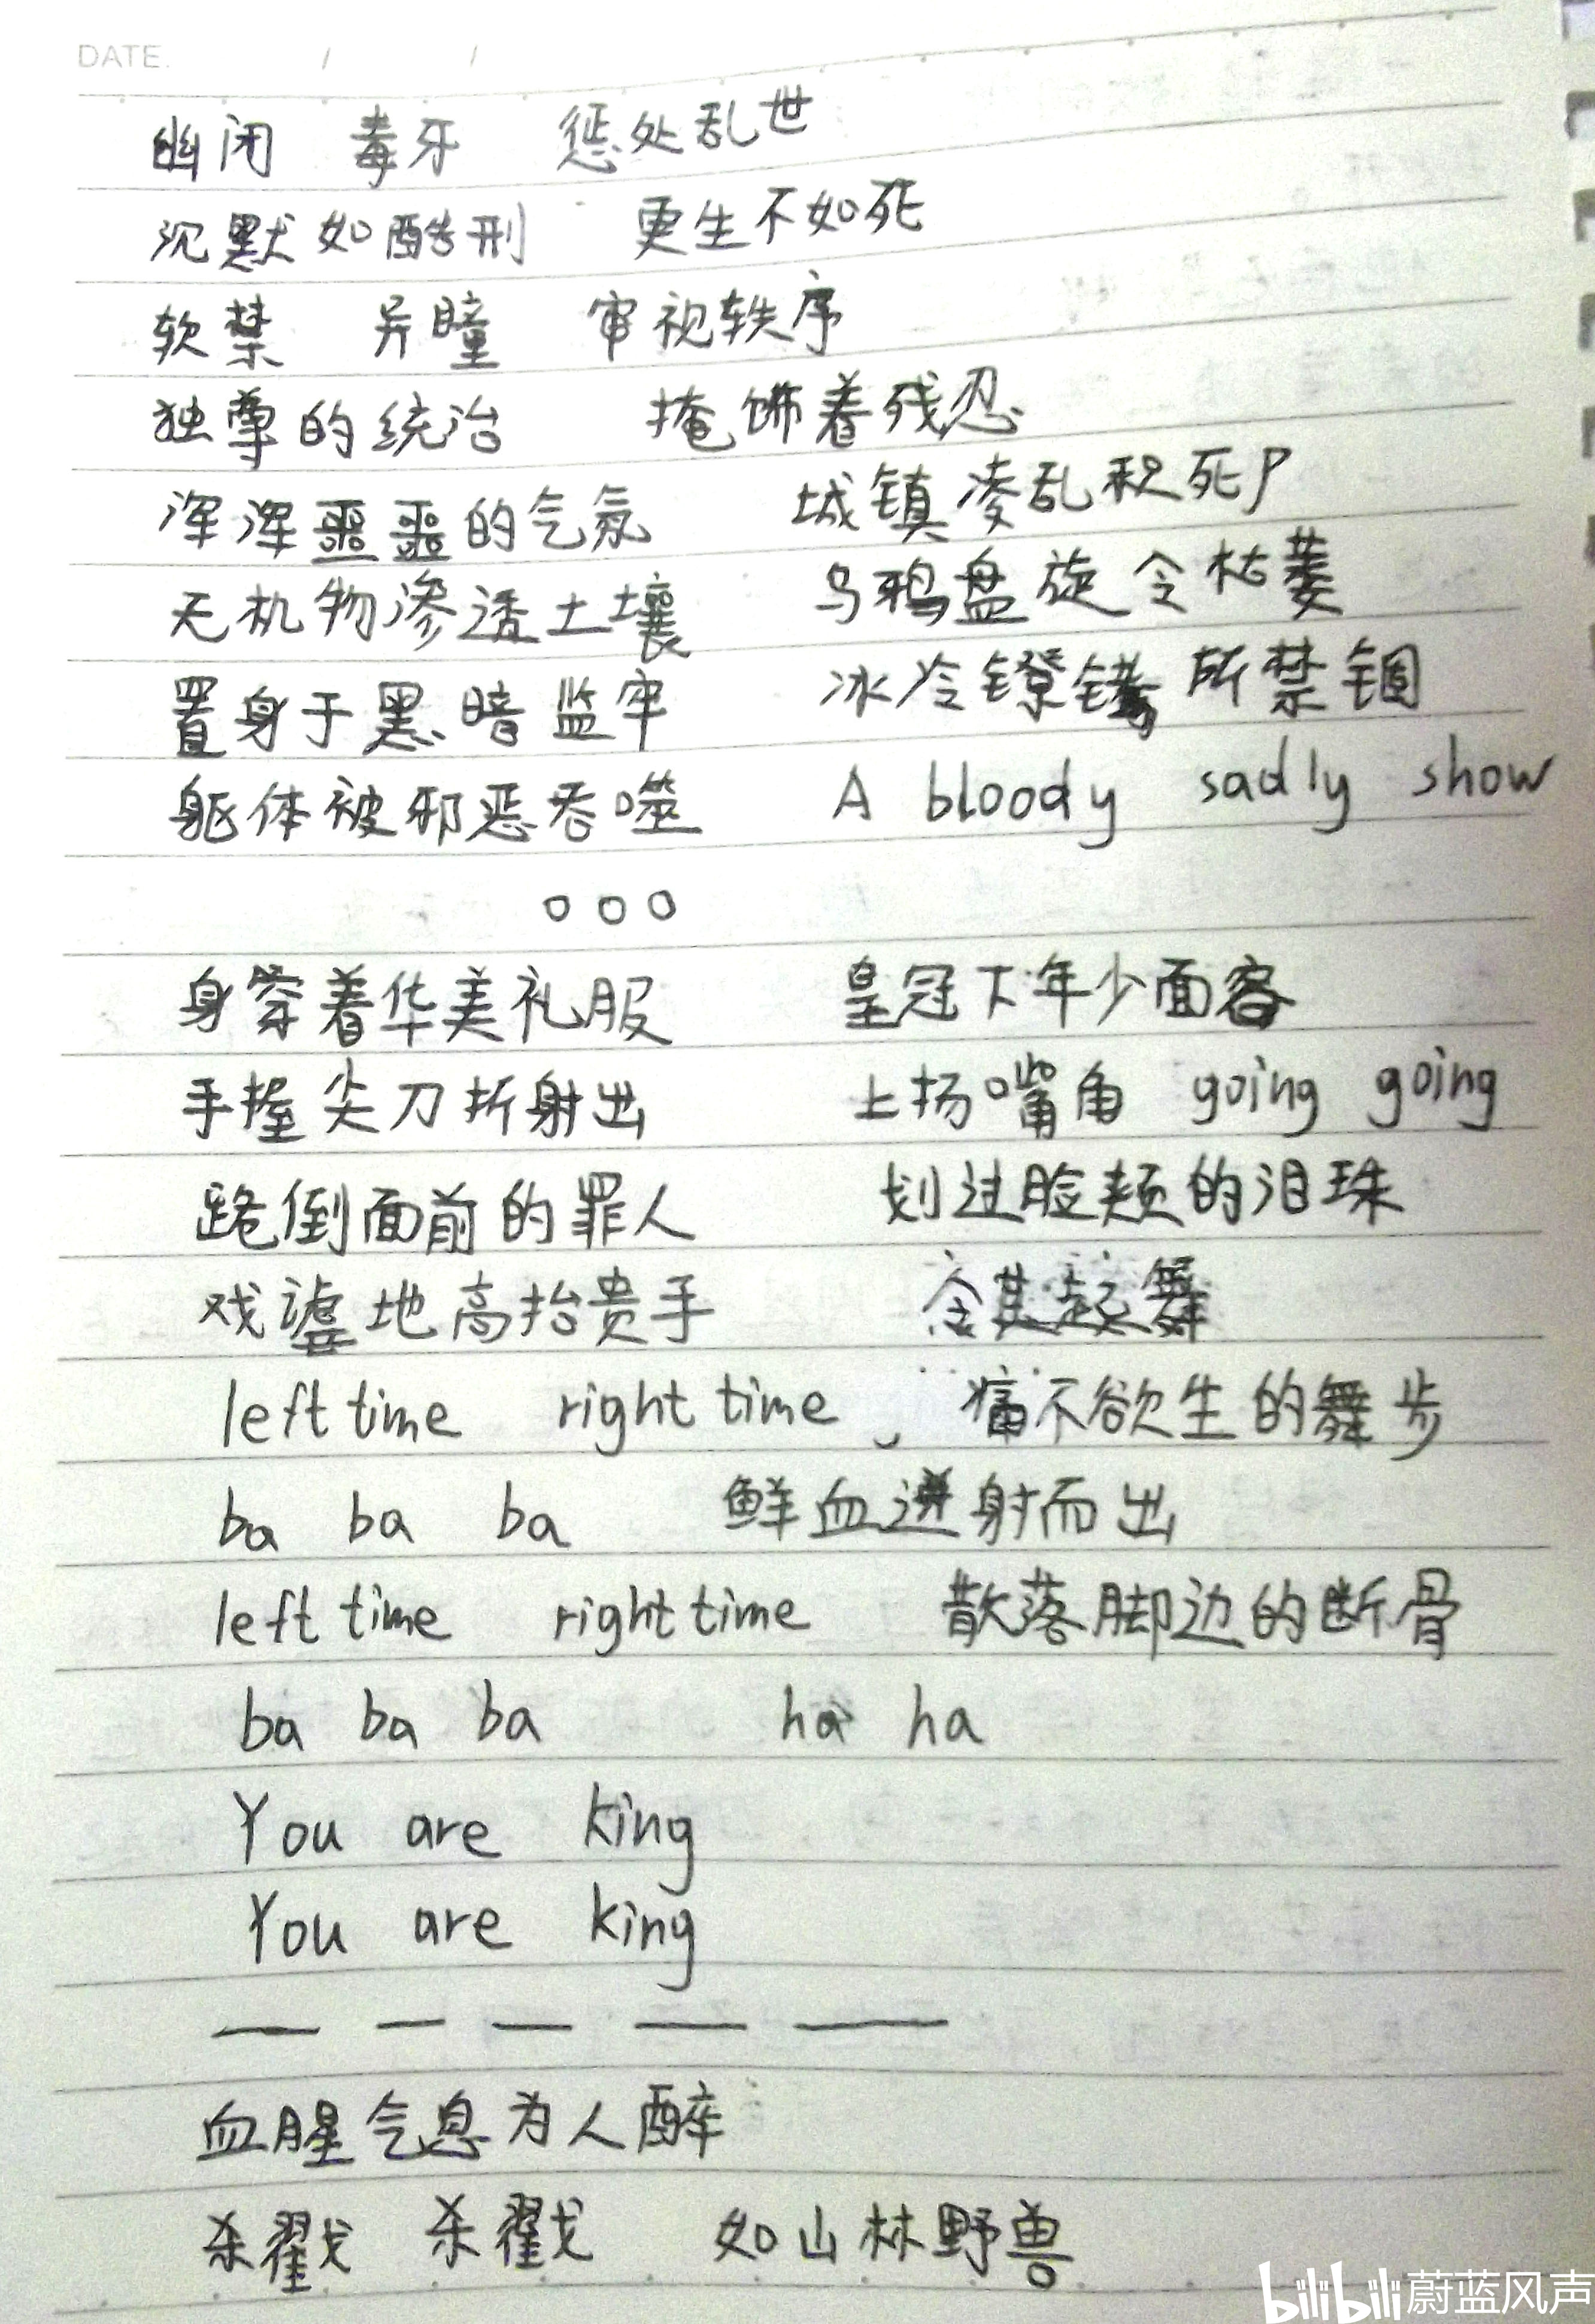 DATE. / /
幽闭 毒牙 惩处乱世
沉默如酷刑 更生不如死
软禁 异瞳 审视轶序
独尊的统治 掩饰着残忍
浑浑噩噩的气氛 城镇凌乱积死尸
无机物渗透土壤 乌鸦盘旋令枯萎
置身于黑暗监牢 冰冷镣铐所禁锢
躯体被邪恶吞噬 A bloody sadly show
○○○
身穿着华美礼服 皇冠下年少面容
手握尖刀折射出 上扬嘴角 going going
跪倒面前的罪人 划过脸颊的泪珠
戏谑地高抬贵手 令其起舞
left time right time 痛不欲生的舞步
ba ba ba 鲜血迸射而出
left time right time 散落脚边的断骨
ba ba ba ha ha
You are king
You are king
— — — — —
血腥气息为人醉
杀戳 杀戳 如山林野兽
bilibili 蔚蓝风声